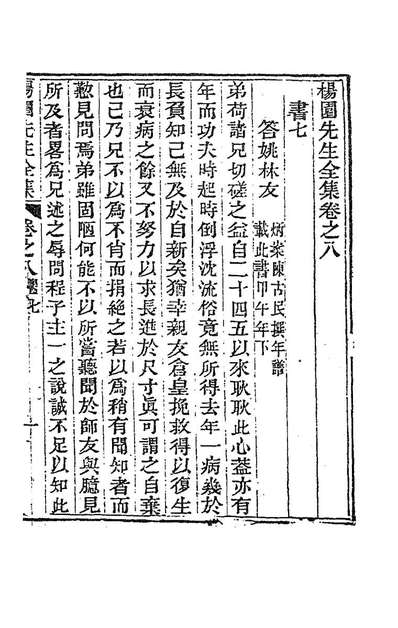 楊園先生全集卷之八
書七
答姚林友
炳案陳古民撰年譜
載此書甲午年下
弟荷諸兄切磋之益自二十四五以來耿耿此心葢亦有
年而功夫時起時倒浮沈流俗竟無所得去年一病幾於
長負知己無及於自新矣猶幸親友倉皇挽救得以復生
而衰病之餘又不努力以求長進於尺寸眞可謂之自棄
也已乃兄不以爲不肖而捐絶之若以爲稍有聞知者而
懃見問焉弟雖固陋何能不以所當聽聞於師友與臆見
所及者畧爲兄述之辱問程子主一之說誠不足以知此
楊園先生全集
卷之八